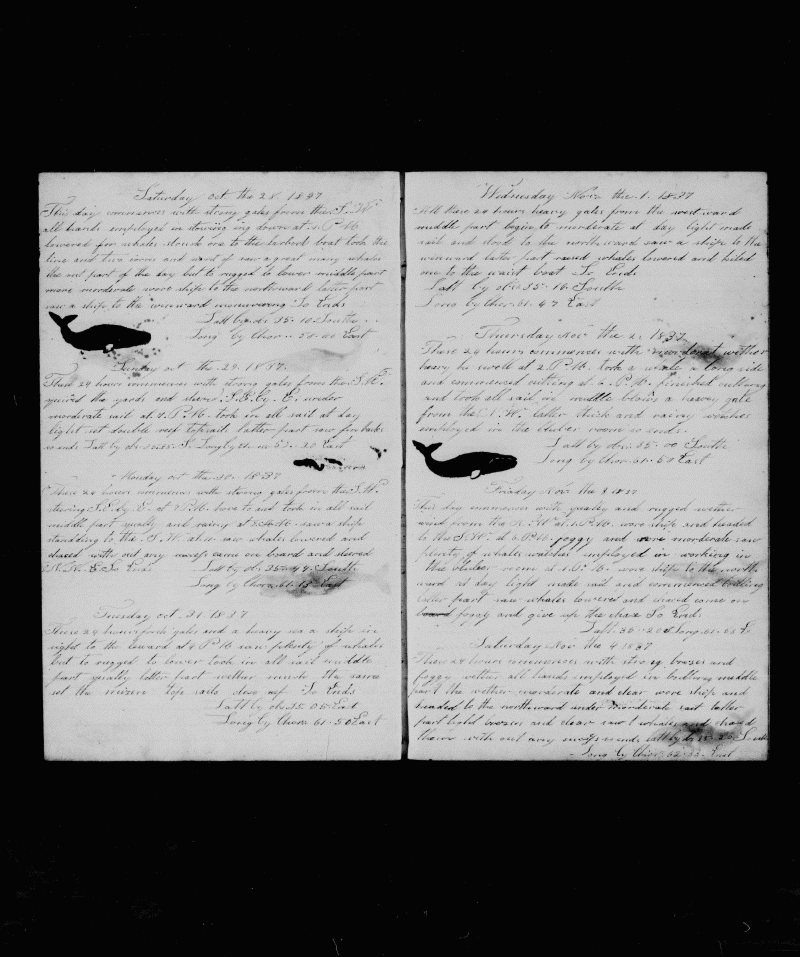 Saturday oct the 28. 1837
This day commences with strong gales from the S. W
all hands employed in stowing down at P M
lowered for whales struck one to the larbord boat took the
line and two irons and saw a great many whales
the out part of the day but to rugged to lower middle part
more morderate wore ship to the northward latter part
saw a ship to the winward So Ends
Latt by obs 35-10 South
Long by Chor 00 East
Sunday oct the 29. 1837.
These 24 hours commences with strong gales from the S. W.
the yards and steared S. E. by E. under
morderate sail at P M took in all sail at day
light set double reef topsails latter part saw fin backs
so ends Latt by obs S. Long by 20 East
Monday oct the 30. 1837
These 24 hours commences with strong gales from the S. W.
stearing S. E. by E. at 7 P M. hove to and took in all sail
middle part squally and rainy at saw a ship
standding to the S. W. at saw whales lowered and
chased with out any success came on board and steared
So Ends Latt by obs 35-49 South
Long by Chor. 61-15 East
Tuesday oct. 31 1837
These 24 hours fresh gales and a heavy sea a ship in
sight to the leward at 4 P M saw plenty of whales
but to rugged to lower took in all sail middle
part squally latter part wether much the same
set the mizzen top sails close reef So Ends
Latt by obs 35 05 East
Long by Chor 61-50 East
Wednesday Nov the. 1. 1837
All these 24 hours heavy gales from the west ward
middle part begins to morderate at day light made
sail and stood to the north ward saw a ship to the
winward latter part raised whales lowered and killed
one to the waist boat So Ends
Latt by obs 35-16 South
Long by Chor. 61-47 East
Thursday Nov the 2. 1837
These 24 hours commences with morderat wether
heavy swell at 2 P. M. took a whale a long side
and commenced cutting at 6. P. M. finished cutting
and took all sail in middle blows a heavy gale
from the W. latter thick and rainy watches
employed in the bluber room so ends.
Latt by obs. 35-00 South
Long by Chor. 61-50 East
Friday Nov the 3 1837
This day commences with squaley and rugged wether
wind from the N. W at P M. wore ship and headed
to the S. W. at 6 P M. foggy and more morderate saw
plenty of whales watches employed in working in
the bluber room at P. M. wore ship to the north
ward at day light made sail and commenced boiling
latter part saw whales lowered and chased came on
board foggy and give up the chas So Ends
Latt. 35-20 S Long.
Saturday Nov the 4 1837
These 24 hours commences with strong brezes and
foggy wether all hands employed in boiling middle
part the wether morderate and clear wore ship and
headed to the northward under morderate sail latter
part light brezes and clear saw whales and chased
them with out any success ends. Latt by obs South
Long by Chor. 62-33 East